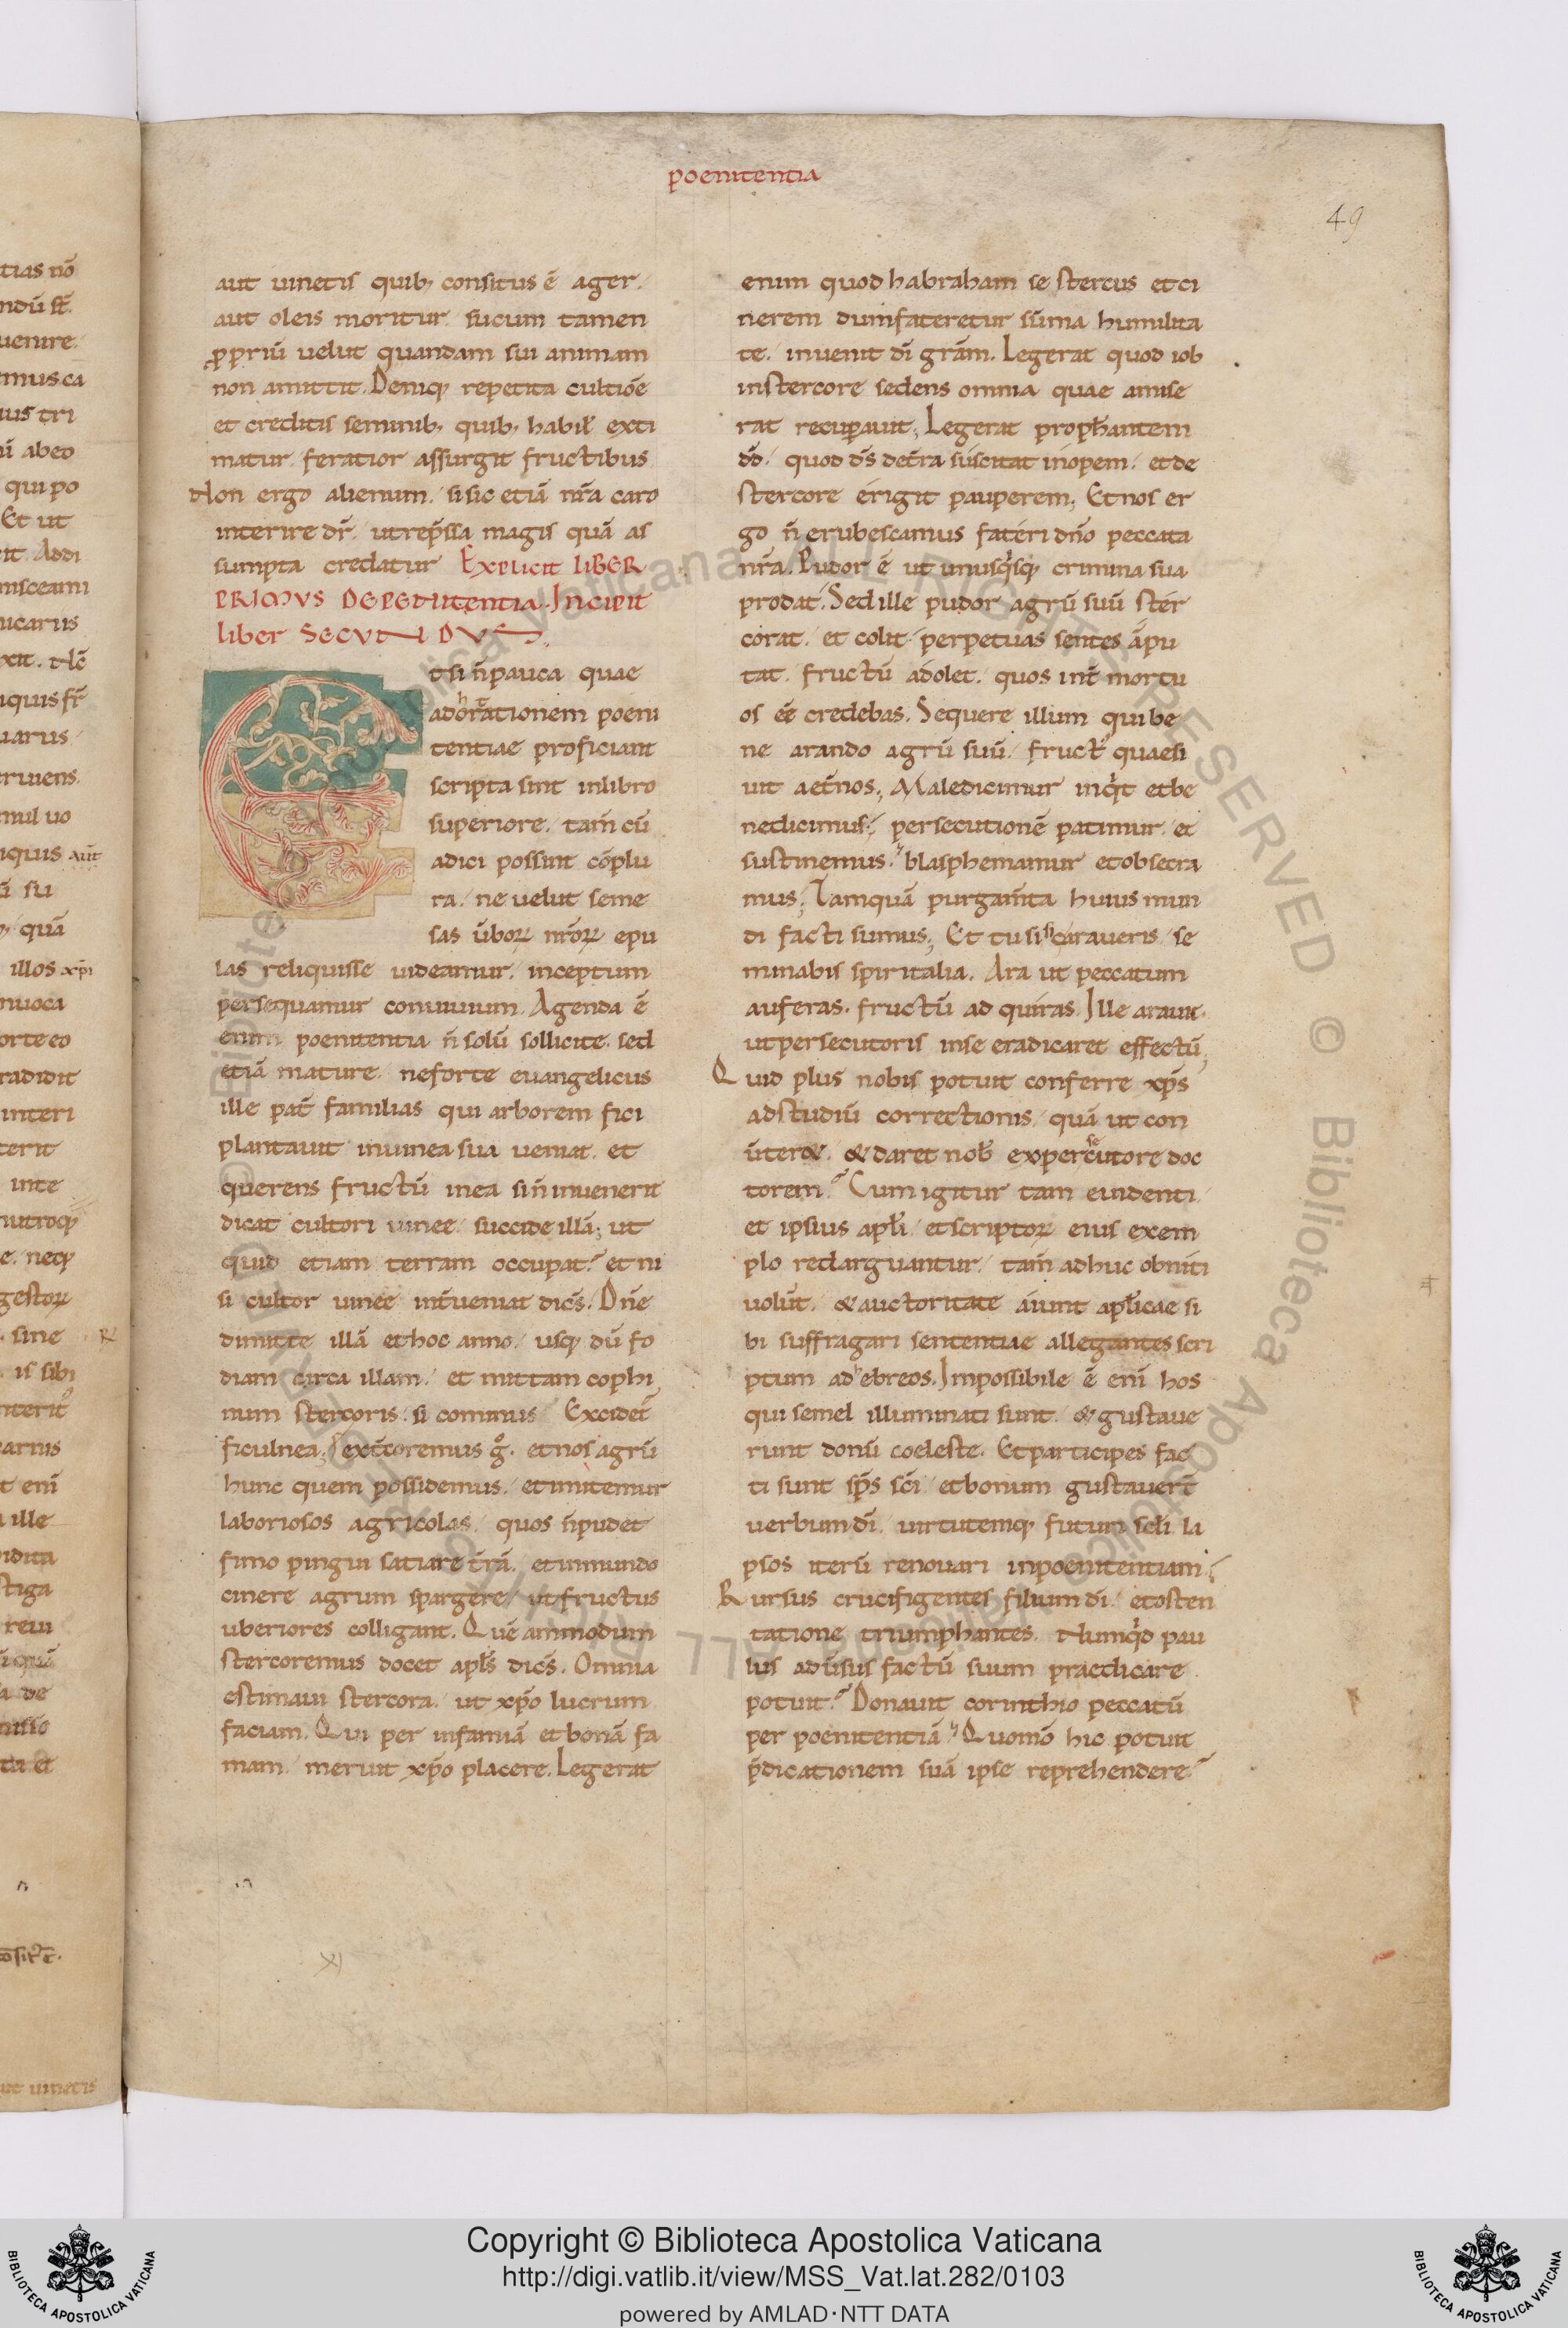 poenitentia
49
aut uinetis quib; consitus ē ager.
aut oleis moritur. sucum tamen
ꝓpriū uelut quandam sui animam
non amittit. Deniq; repetita cultiōe
et creditis seminib; quib; habil̄ exti
matur. feratior assurgit fructibus
Non ergo alienum. si sic etiā nr̄a caro
interire dr̄. ut rep̄ssa magis quā as
sumpta credatur Explicit LIBER
PRIMVS DE PENITENTIA. Incipit
liber SECVNDVS.
Et si n̄ pauca quae
adhortationem poeni
tentiae proficiant
scripta sint in libro
superiore. tam̄ cū
adici possint cōplu
ra. ne uelut seme
sas ūboꝝ nr̄oꝝ epu
las reliquisse uideamur. inceptum
persequamur conuiuium. Agenda ē
enim poenitentia n̄ solū sollicite. sed
etiā mature. ne forte euangelicus
ille pat̄ familias qui arborem fici
plantauit in uinea sua ueniat. et
querens fructū in ea si n̄ inuenerit
dicat cultori uinee. succide illā; ut
quid etiam terram occupat? et ni
si cultor uinee int̄ueniat dic̄s. Dn̄e
dimitte illā et hoc anno. usq; dū fo
diam circa illam. et mittam cophi
num stercoris. si cominus Excidet̄
ficulnea; Stercoremus g̊. et nos agrū
hunc quem possidemus. et imitemur
laboriosos agricolas. quos n̄ pudet
fimo pingui satiare t̄rā. et inmundo
cinere agrum spargere. ut fructus
uberiores colligant. Quē ammodum
stercoremus docet apl̄s dic̄s. Omnia
estimaui stercora. ut xp̄o lucrum
faciam. Qui per infamiā et bonā fa
mam. meruit xp̄o placere. Legerat
enim quod habraham se stercus et ci
nerem dum fateretur sūma humilita
te. inuenit dī grām. Legerat quod iob
in stercore sedens omnia quae amise
rat recuꝑauit; Legerat prophantem
dd̄. quod ds̄ de t̄ra suscitat inopem. et de
stercore erigit pauperem; Et nos er
go n̄ erubescamus fateri dn̄o peccata
nr̄a. Pudor ē ut unusq̇sq; crimina sua
prodat. Sed ille pudor agrū suū ster
corat. et colit. perpetuas sentes āpu
tat. fructū adolet. quos int̄ mortu
os eē credebas. Sequere illum qui be
ne arando agrū suū. fruct̄ quaesi
uit aet̄nos; Maledicimur inq̇t et be
nedicimus; persecutionē patimur. et
sustinemus. blasphemamur et obsecra
mus; Tamquā purgam̄ta huius mun
di facti sumus; Et tu si sic araueris. se
minabis spiritalia. Ara ut peccatum
auferas. fructū ad quiras. Ille arauit.
ut persecutoris in se eradicaret effectū;
Quid plus nobis potuit conferre xp̄s
ad studiū correctionis. quā ut con
ūteret. & daret nob̄ ex persecutore doc
torem? Cum igitur tam euidenti.
et ipsius apl̄i. et scriptoꝝ eius exem
plo redarguantur. tam̄ adhuc obniti
uolūt. & auctoritate aiunt apl̄icae si
bi suffragari sententiae allegantes scri
ptum ad hebreos. Impossibile ē enī hos
qui semel illuminati sunt. & gustaue
runt donū coeleste. Et participes fac
ti sunt sp̄s sc̄i. et bonum gustauert̄
uerbum dī. uirtutemq; futuri scl̄i la
psos iterū renouari in poenitentiam;
Rursus crucifigentes filium dī. et osten
tatione triumphantes. Numq̇d pau
lus aduersus factū suum praedicare
potuit? Donauit corinthio peccatū
per poenitentiā. Quomō hic potuit
p̄dicationem suā ipse reprehendere?
XI
Copyright © Biblioteca Apostolica Vaticana
http://digi.vatlib.it/view/MSS_Vat.lat.282/0103
powered by AMLAD·NTT DATA
BIBLIOTECA APOSTOLICA VATICANA
BIBLIOTECA APOSTOLICA VATICANA